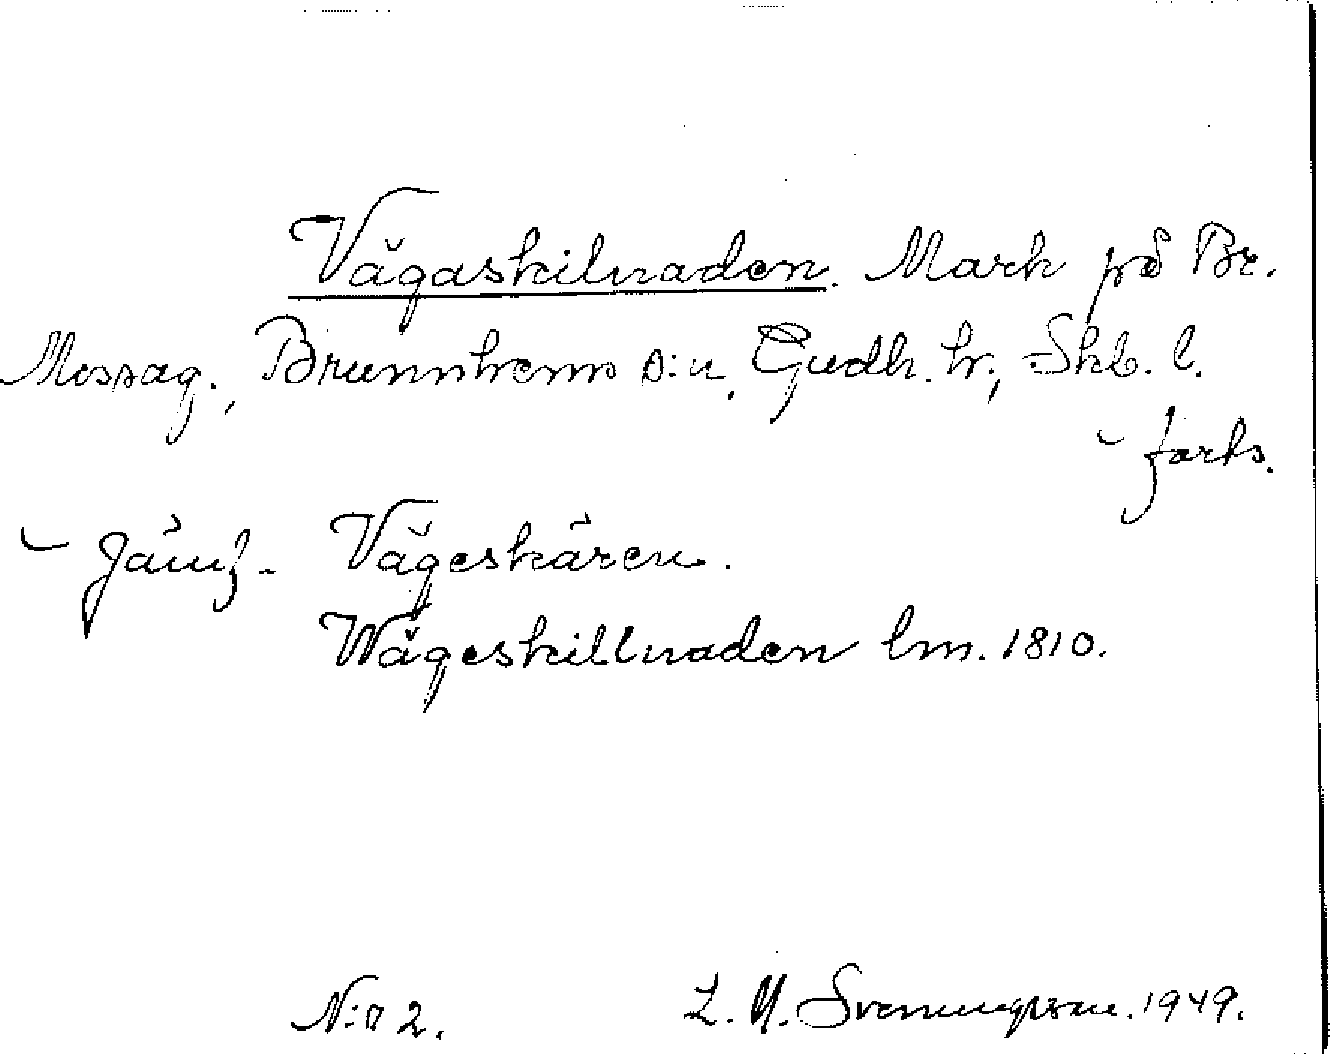 Vägaskilnaden. Mark på Br.
Mossag., Brunnhems s:n, Gudh. hr, Skb. l.
- forts.
- Jämf. Vägeskären.
Wägeskillnaden lm. 1810.
N:o 2. L. M. Svenungsson. 1949.